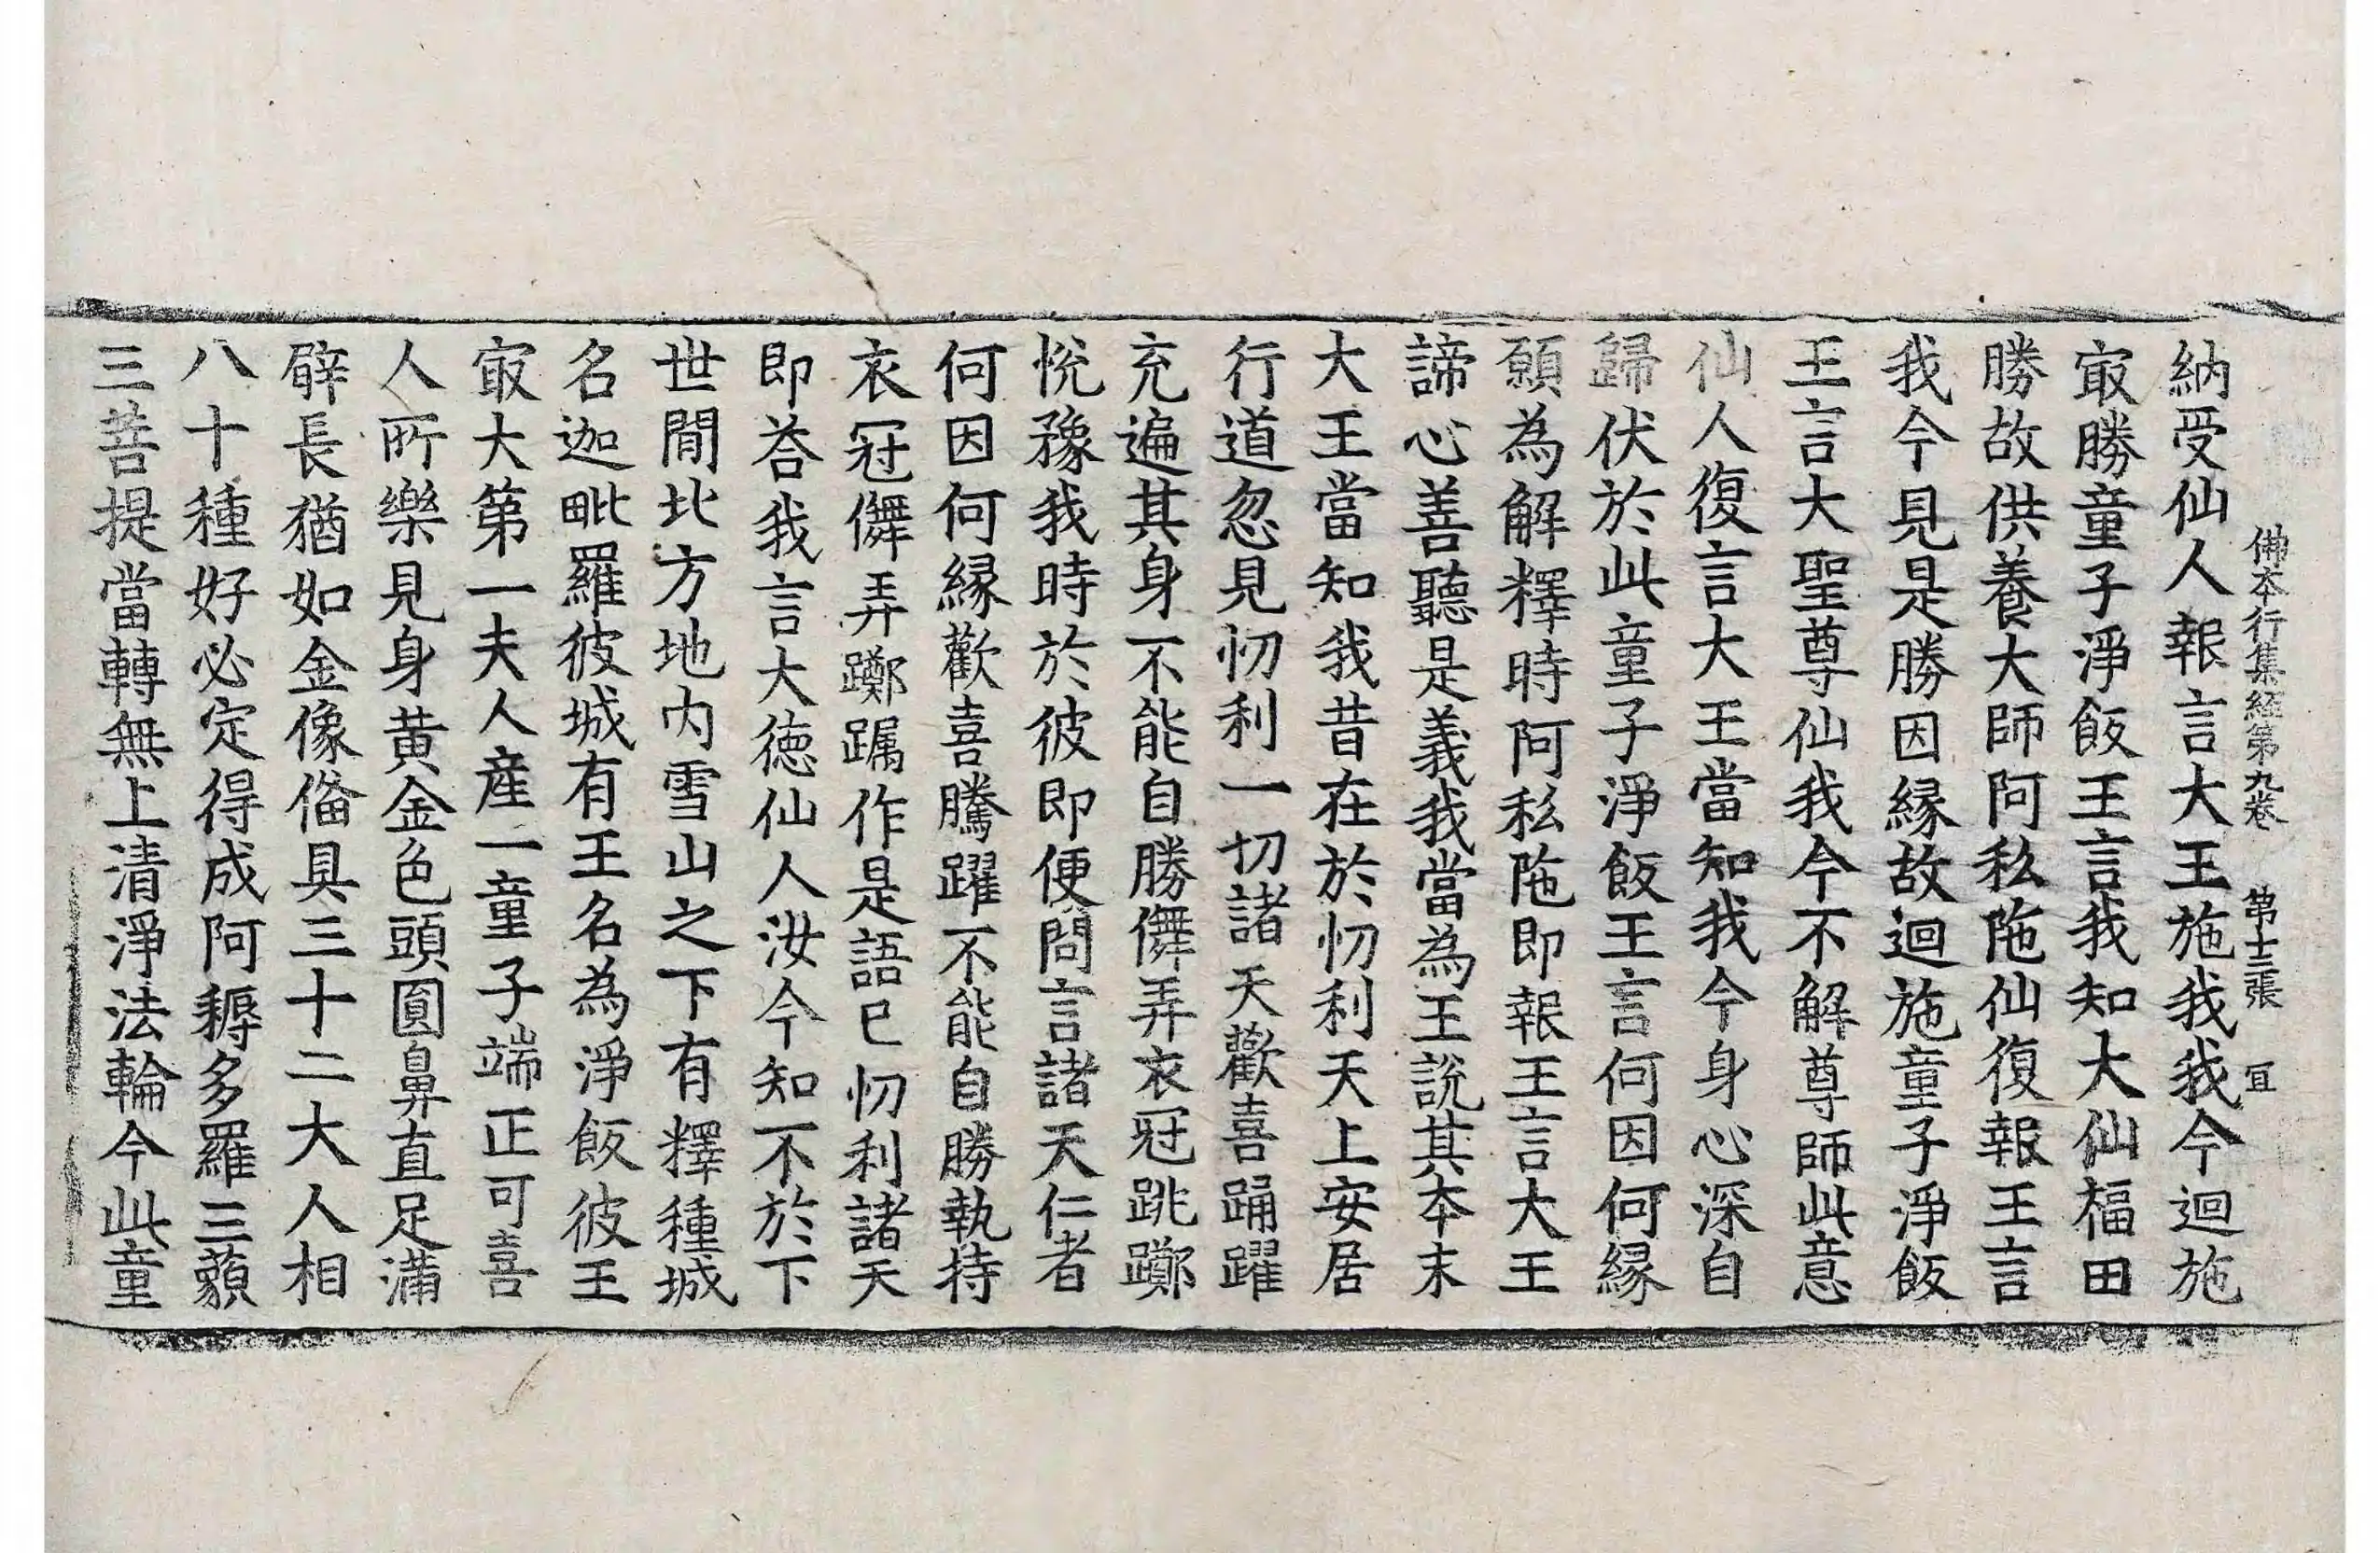 佛本行集經第九卷 第十三張 冝
納受仙人報言大王施我我今迴施
㝡勝童子淨飯王言我知大仙福田
勝故供養大師阿私陁仙復報王言
我今見是勝因縁故迴施童子淨飯
王言大聖尊仙我今不解尊師此意
仙人復言大王當知我今身心深自
歸伏於此童子淨飯王言何因何縁
願為解釋時阿私陁即報王言大王
諦心善聽是義我當為王說其本末
大王當知我昔在於忉利天上安居
行道忽見忉利一切諸天歡喜踊躍
充遍其身不能自勝儛弄衣冠跳躑
悅豫我時於彼即便問言諸天仁者
何因何縁歡喜騰躍不能自勝執持
衣冠儛弄躑躅作是語已忉利諸天
即荅我言大德仙人汝今知不於下
世間北方地内雪山之下有釋種城
名迦毗羅彼城有王名為淨飯彼王
㝡大第一夫人産一童子端正可喜
人所樂見身黄金色頭圓鼻直足滿
臂長猶如金像俻具三十二大人相
八十種好必定得成阿耨多羅三藐
三菩提當轉無上清淨法輪今此童